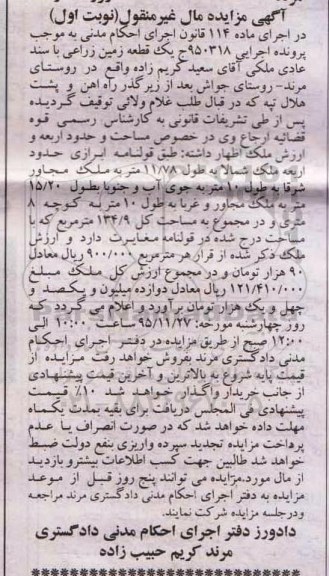 آگهی مزایده مال غیرمنقول(نوبت اول)
در اجرای ماده ۱۱۴ قانون اجرای احکام مدنی به موجب
پرونده اجرایی ۹۵۰۳۱۸ج یک قطعه زمین زراعی با سند
عادی ملکی آقای سعید کریم زاده واقع در روستای
مرند- روستای جواش بعد از زیرگذر راه آهن و پشت
هلال تپه که در قبال طلب غلام ولائی توقیف گردیده
پس از طی تشریفات قانونی به کارشناس رسمی قوه
قضائیه ارجاع وی در خصوص مساحت و حدود اربعه و
ارزش ملک اظهار داشته: طبق قولنامه ابرازی حدود
اربعه ملک شمالا به طول ۱۱/۷۸ متر به ملک مجاور
شرقا به طول ۱۰ متر به جوی آب و جنوبا بطول ۱۵/۲۰
متر به ملک مجاور و غربا به طول ۱۰ متر به کوچه ۸
متری و در مجموع به مساحت کل ۱۳۴/۹ مترمربع که با
مساحت درج شده در قولنامه مغایرت دارد و ارزش
ملک ذکر شده از قرار هر مترمربع ۹۰۰/۰۰۰ ریال معادل
۹۰ هزار تومان و در مجموع ارزش کل ملک مبلغ
۱۲۱/۴۱۰/۰۰۰ ریال معادل دوازده میلیون و یکصد و
چهل و یک هزار تومان برآورد و اعلام می گردد که
روز چهارشنبه مورخه: ۹۵/۱۱/۲۷ ساعت ۱۰:۰۰ الی
۱۲:۰۰ صبح از طریق مزایده در دفتر اجرای احکام
مدنی دادگستری مرند بفروش خواهد رفت مزایده از
قیمت پایه شروع به بالاترین و آخرین قیمت پیشنهادی
از جانب خریدار واگذار خواهد شد ۱۰٪ قیمت
پیشنهادی فی المجلس دریافت برای بقیه بمدت یکماه
مهلت داده خواهد شد که در صورت انصراف یا عدم
پرداخت مزایده تجدید سپرده واریزی بنفع دولت ضبط
خواهد شد طالبین جهت کسب اطلاعات بیشتر و بازدید
از مال مورد.مزایده می توانند پنج روز قبل از موعد
مزایده به دفتر اجرای احکام مدنی دادگستری مرند مراجعه
ودرجلسه مزایده شرکت نمایند.
دادورز دفتر اجرای احکام مدنی دادگستری
مرند کریم حبیب زاده